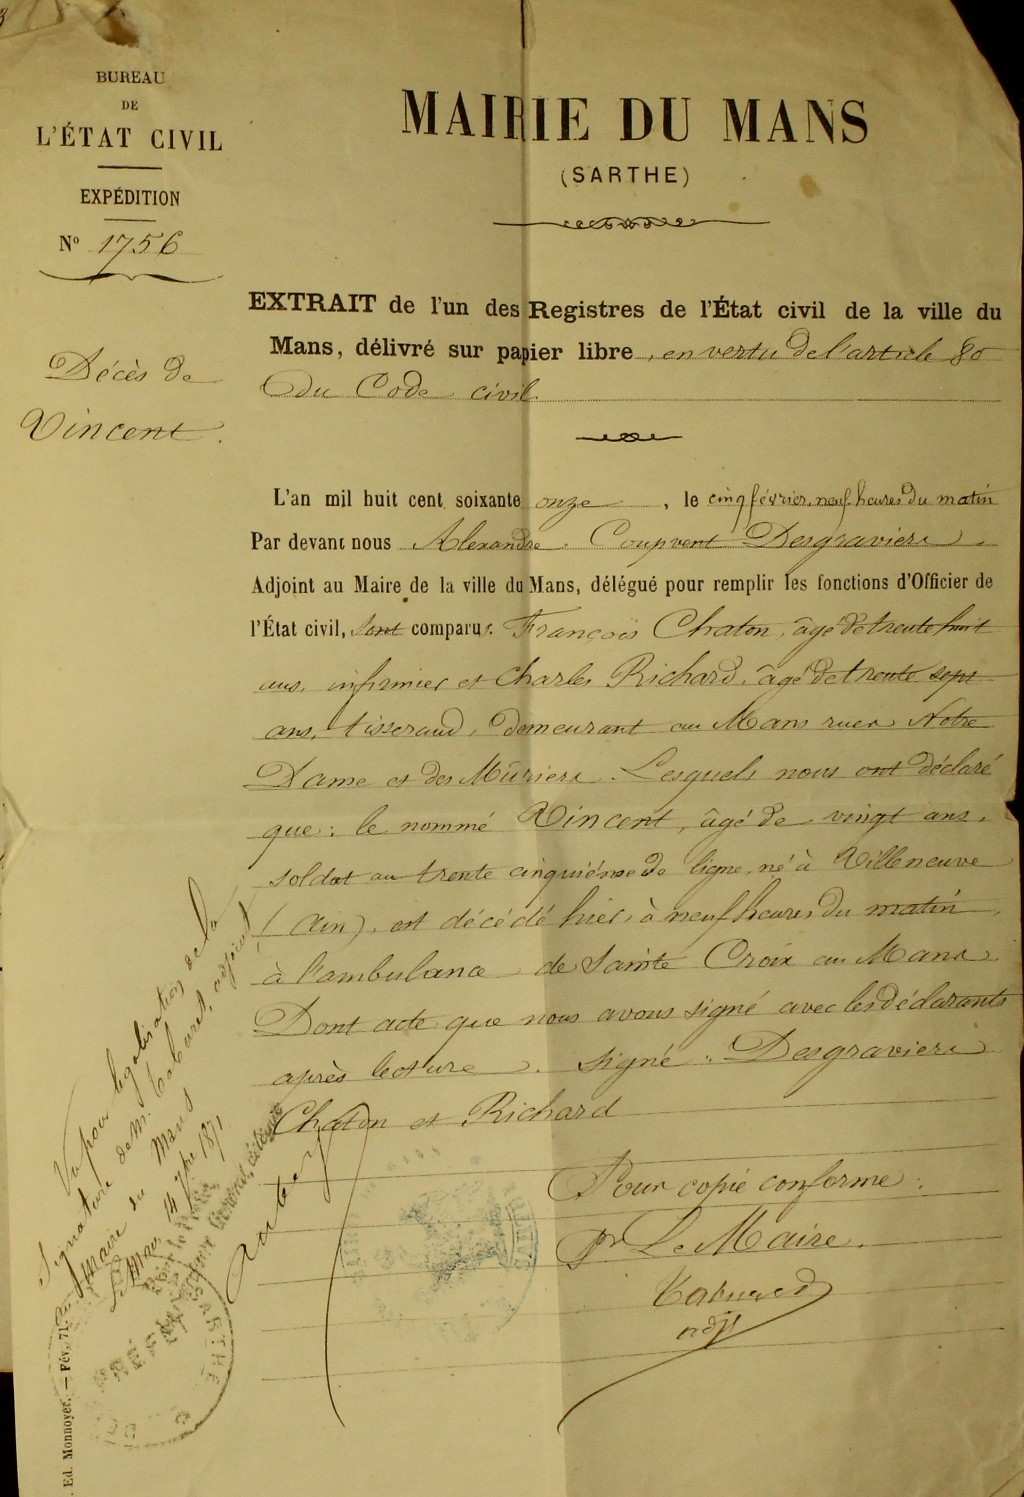 BUREAU
DE
L'ÉTAT CIVIL
EXPÉDITION
N° 1756
Décès de
Vincent.
MAIRIE DU MANS
(SARTHE)
EXTRAIT de l'un des Registres de l'État civil de la ville du
Mans, délivré sur papier libre, en vertu de l'article 80
du Code civil
L'an mil huit cent soixante onze, le cinq février, neuf heures du matin
Par devant nous Alexandre Coupvent Desgraviers,
Adjoint au Maire de la ville du Mans, délégué pour remplir les fonctions d'Officier de
l'État civil, sont comparus. François Chaton, âgé de trente huit
ans, infirmier et Charles Richard, âgé de trente sept
ans, tisserand, demeurant au Mans rues Notre
Dame et des Mûriers. Lesquels nous ont déclaré
que : le nommé Vincent, âgé de vingt ans,
soldat au trente cinquième de ligne, né à Villeneuve
(Ain), est décédé hier, à neuf heures du matin,
à l'ambulance de Sainte Croix au Mans
Dont acte que nous avons signé avec les déclarants
après lecture. signé : Desgraviers
Chaton et Richard
Pour copie conforme :
pr Le Maire.
adjt
Vu pour légalisation de la
Signature de M. adjoint
au Maire du Mans
Le Mans, 14 7bre 1871
Le Secrétaire Général, délégué
PRÉFECTURE SARTHE
Ed. Monnoyer. — Fév. 71.